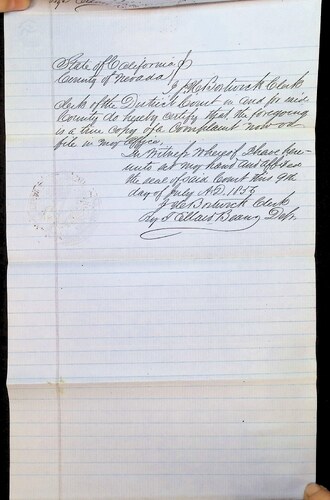 State of California }
County of Nevada }
I J. H. Bostwick Clerk
clerk of the District Court in and for said
County do hereby certify that the foregoing
is a true copy of a Complaint now on
file in my office.
In Witness Whereof I have here-
unto set my hand and affixed
the seal of said Court this 9th
day of July A.D. 1856
J H Bostwick Clerk
By J. Ellard Beans Dept.